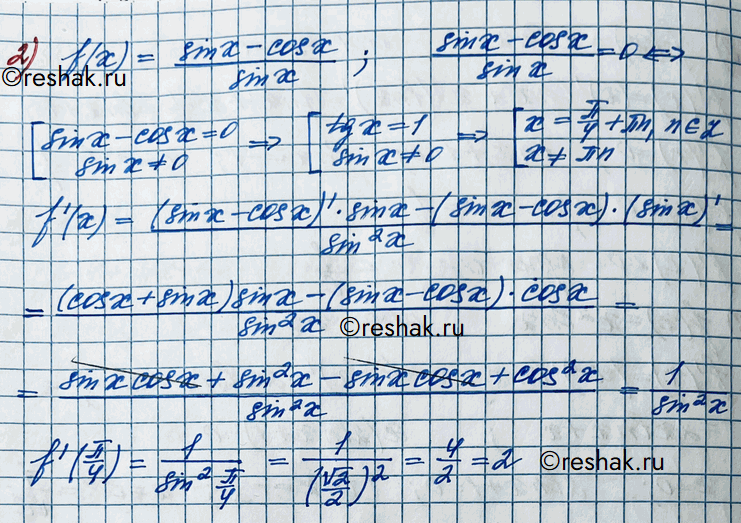 2) f(x) = (sinx − cosx)/sinx ; (sinx − cosx)/sinx = 0 ⟺
©reshak.ru
[sinx − cosx = 0 ⟹ [tgx = 1 ⟹ [x = π/4 + πn, n∈Z
sinx ≠ 0 sinx ≠ 0 x ≠ πn
f'(x) = ((sinx − cosx)'·sinx − (sinx − cosx)·(sinx)')/sin²x =
= ((cosx + sinx)sinx − (sinx − cosx)·cosx)/sin²x =
©reshak.ru
= (sinx cosx + sin²x − sinx cosx + cos²x)/sin²x = 1/sin²x
f'(π/4) = 1/sin² π/4 = 1/(√2/2)² = 4/2 = 2
©reshak.ru